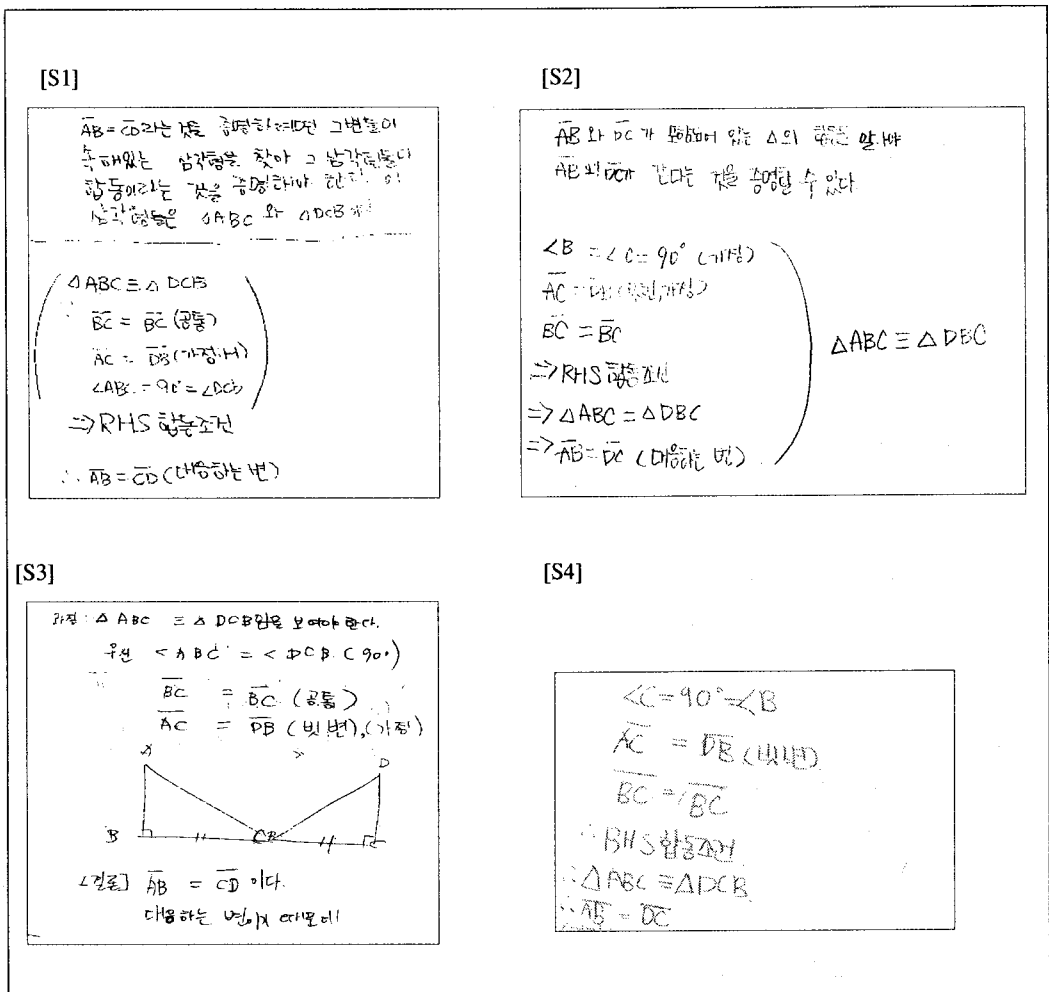 [S1]
AB = CD라는 것을 증명하려면 그변들이
속해있는 삼각형을 찾아 그 삼각형들이
합동이라는 것을 증명해야 한다. 이
삼각형들은 △ABC 와 △DCB
△ABC ≡ △DCB
BC = BC (공통)
AC = DB (가정에서)
∠ABC = 90° = ∠DCB
=> RHS 합동조건
∴ AB = CD (대응하는 변)
[S2]
AB 와 DC 가 포함되어 있는 △의 합동을 알아야
AB 와 DC가 같다는 것을 증명할 수 있다.
∠B = ∠C = 90° (가정)
AC = (빗변, 가정)
BC = BC
=> RHS 합동조건
=> △ABC ≡ △DBC
=> AB = DC (대응하는 변)
△ABC ≡ △DBC
[S3]
과정 : △ ABC ≡ △ DCB임을 보여야 한다.
우선 < ABC = < DCB (90°)
BC = BC (공통)
AC = DB (빗변), (가정)
A
D
B
CB
[결론] AB = CD 이다.
대응하는 변이기 때문에
[S4]
∠C = 90° = ∠B
AC = DB (빗변)
BC = BC
∴ RHS 합동조건
∴ △ABC ≡ △DCB
∴ AB = DC